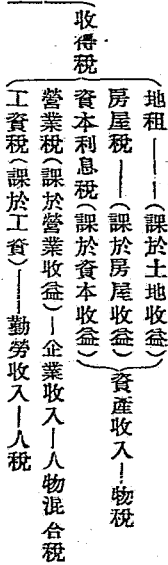 收得稅
地租——(課於土地收益)
房屋稅——(課於房屋收益)
資本利息稅(課於資本收益)
資產收入—物稅
營業稅(課於營業收益)—企業收入—人物混合稅
工資稅(課於工資)——勤勞收入—人稅